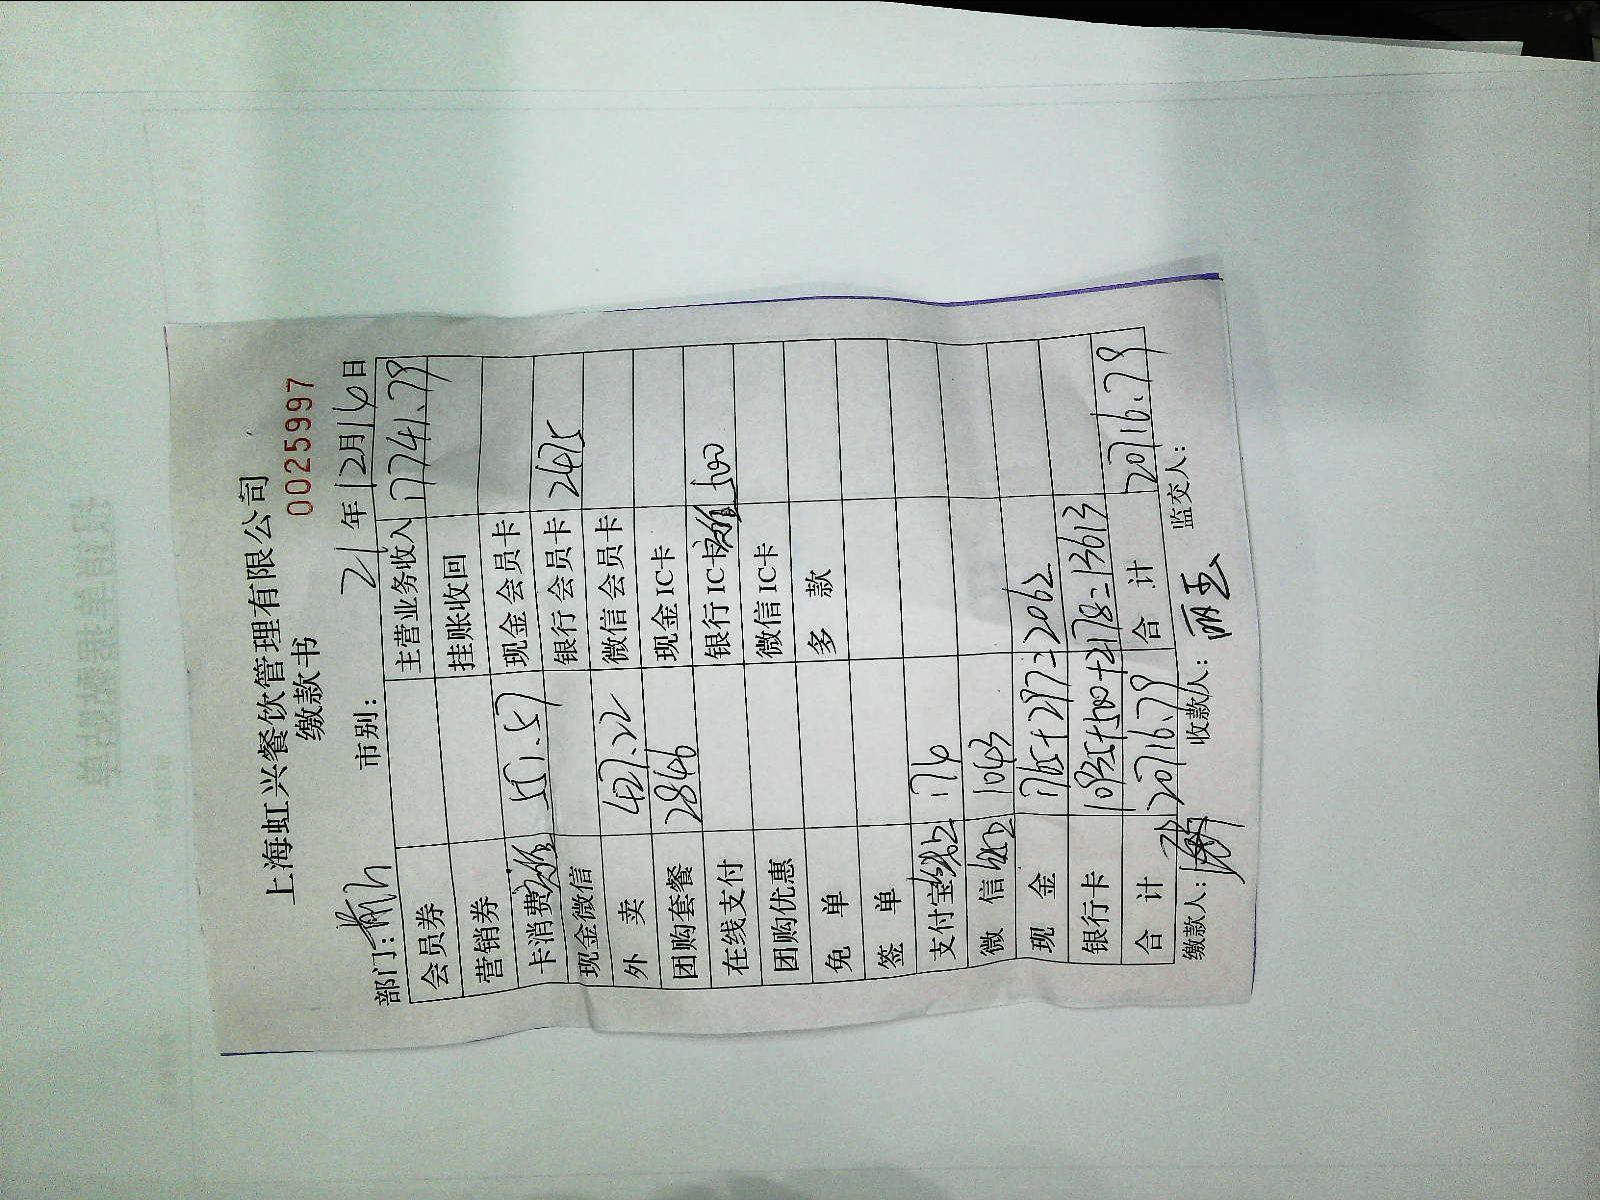 上海虹兴餐饮管理有限公司
缴款书 0025997
部门: 市别: 21年12月14日
会员券 主营业务收入 17741.79
营销券 挂账收回
卡消费 551.57 现金会员卡
现金微信 银行会员卡 2475
外 卖 427.22 微信会员卡
团购套餐 2846 现金IC卡
在线支付 银行IC卡 500
团购优惠 微信IC卡
免 单 多 款
签 单
支付宝 174
微 信 1043
现 金 1765+297=2062
银行卡 10935+500+2178=13613
合 计 20716.79 合 计 20716.79
缴款人: 收款人: 丽玉 监交人: